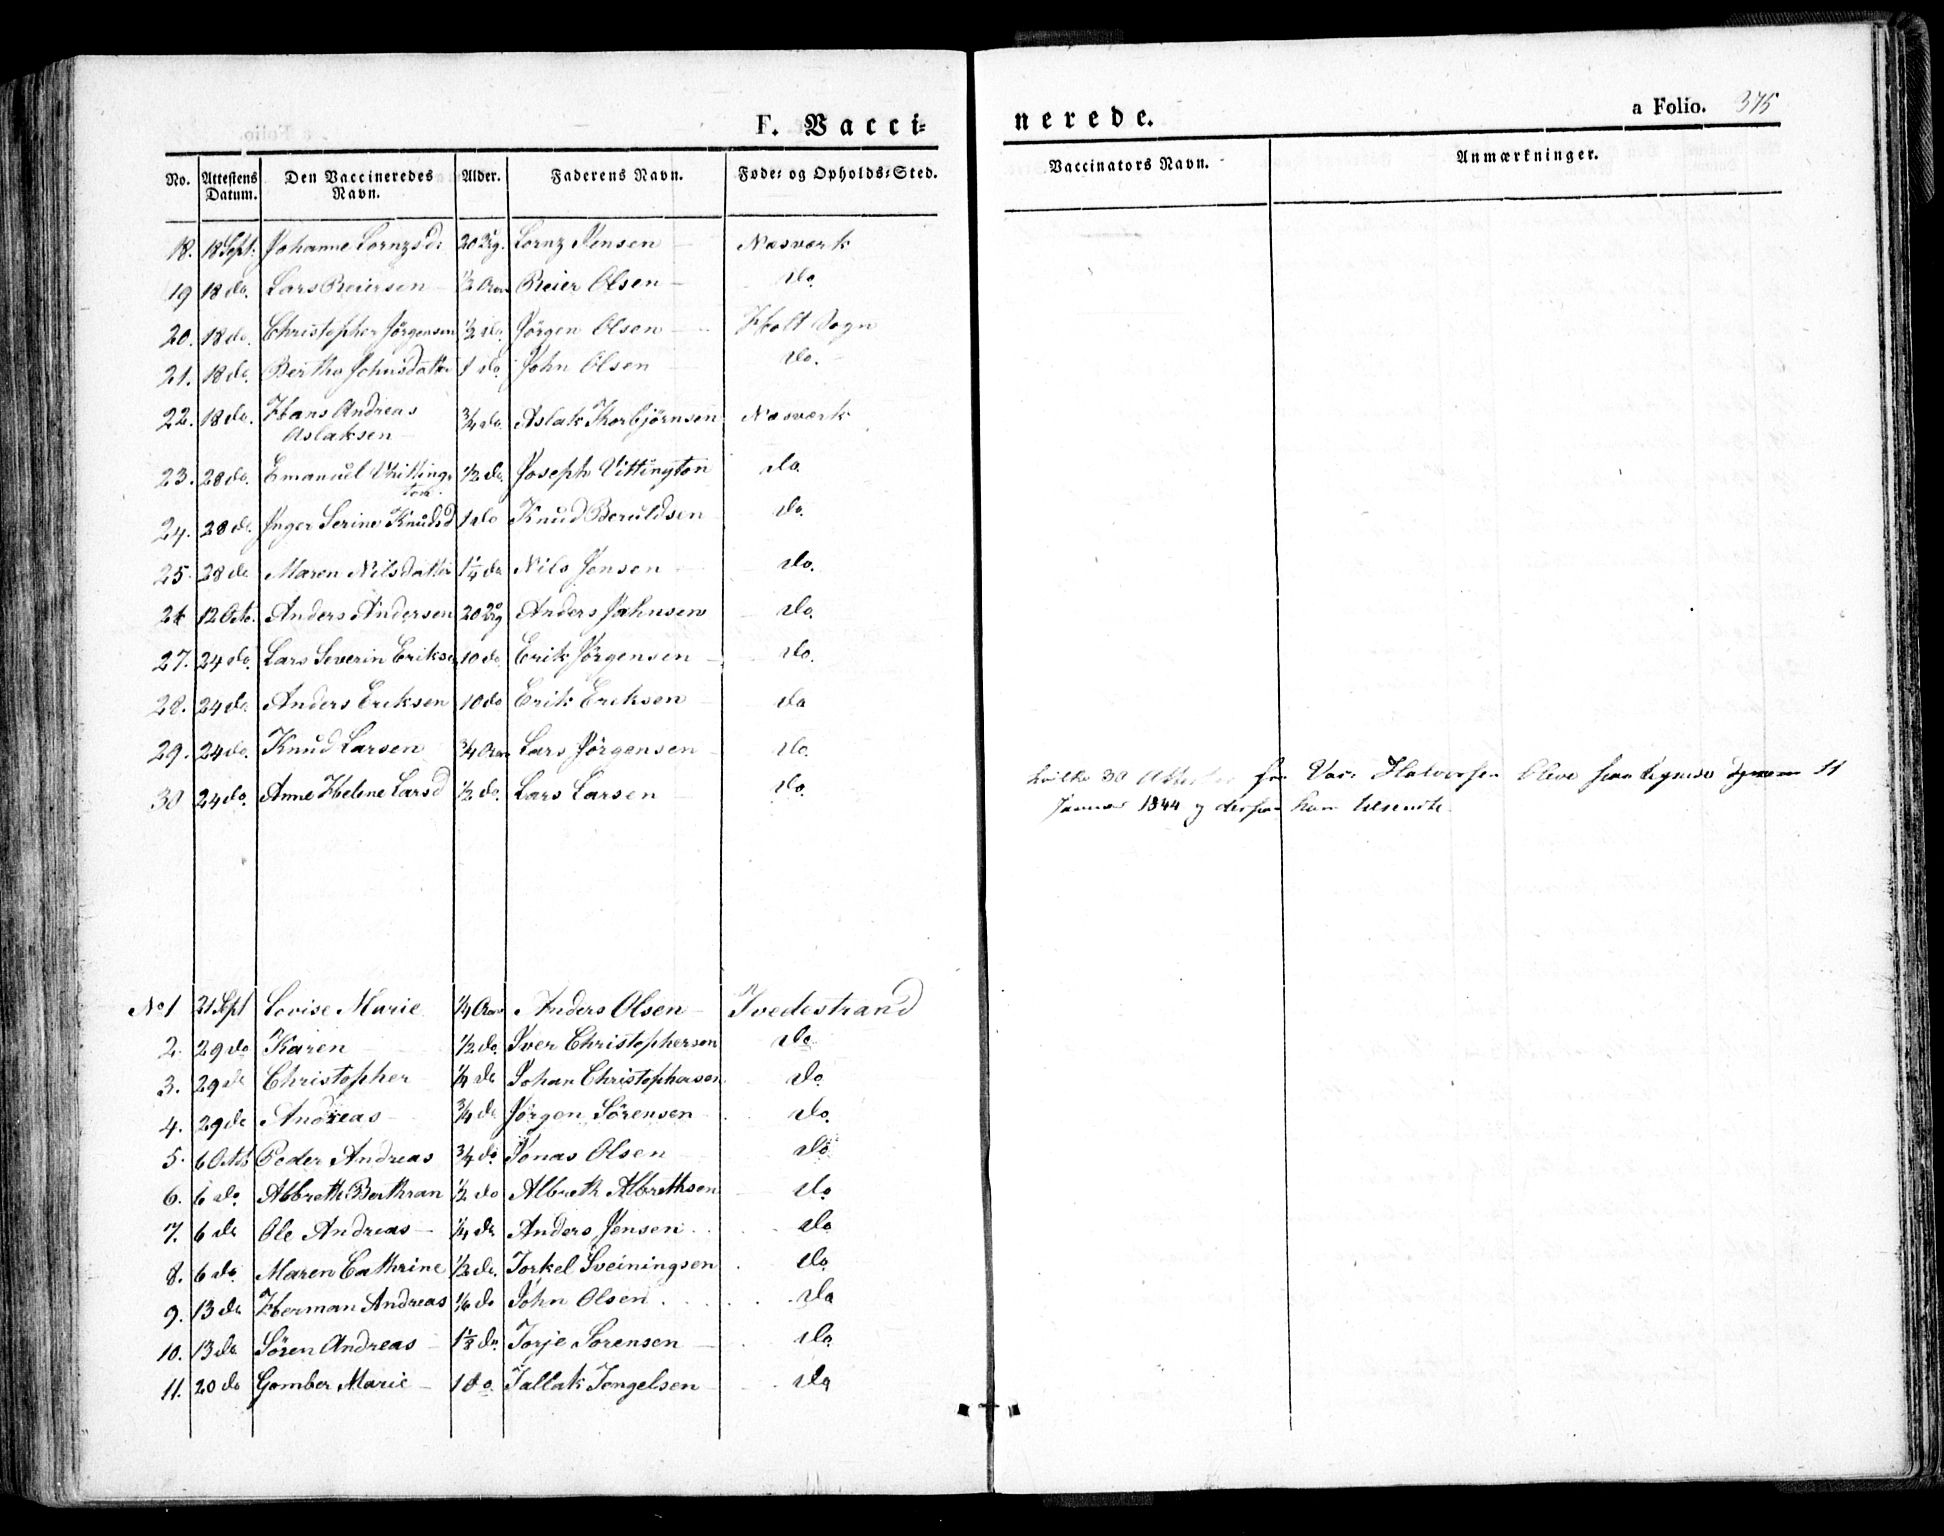 F. Vacci=
nerede.
a Folio. 375
No. Attestens Datum. Den Vaccineredes Navn. Alder. Faderens Navn. Føde= og Opholds=Sted. Vaccinators Navn. Anmærkninger.
18. 18 Sept: Johanne Lornzsdr 20 Lornz Jensen — Næsværk
19 18 do. Lars Reiersen — 1/2 Aar Reier Olsen — do.
20. 18 do. Christopher Jörgensen 1/2 do. Jörgen Olsen — Holt Sogn
21. 18 do. Berthe Johnsdatter 1 do. John Olsen do.
22. 18 do. Hans Andreas
Aslaksen — 3/4 do. Aslak Thorbjörnsen Næsværk
23. 28 do. Emanuel Vhitting=
ton. 1/2 do. Joseph Vittington do
24. 28 do. Inger Serine Knudsd 1 do Knud Beruldsen do.
25. 28 do Maren Nilsdatter 1 1/4 do Nils Jensen do.
26 12 Octo. Anders Andersen 20 Anders Jahnsen do.
27. 24 do. Lars Severin Eriksen 10 do. Erik Jörgensen — do.
28. 24 do. Anders Eriksen 10 do Erik Eriksen do
29. 24 do. Knud Larsen 3/4 Aar Lars Jörgensen do.
30 24 do. Anne Helene Larsd 1/2 do. Lars Larsen — do.
hvilke 30 Attester Halvorsen Oleve 11
Januar 1844 og ham tilsendte.
No 1 21 Sept Lovise Marie 1/4 Aar Anders Olsen — Tvedestrand
2. 29 do Karen 1/2 do. Iver Christophersen do.
3. 29 do Christopher 1/4 do Johan Christophersen do
4. 29 do Andreas — 3/4 do Jörgen Sörensen do.
5. 6 Octob Peder Andreas 3/4 do Jonas Olsen do
6. 6 do. Albreth Berthran 1/2 do Albreth Albrethsen do
7. 6 do Ole Andreas — 1/4 do Anders Jensen do
8. 6 do. Maren Cathrine 1/2 do. Torkel Sveiningsen do
9. 13 do Herman Andreas 1/6 do John Olsen do
10. 13 do Sören Andreas 1 1/2 do. Torje Sorensen — do.
11. 20 do Gomber Marie — 1 do. Tallak Tengelsen do